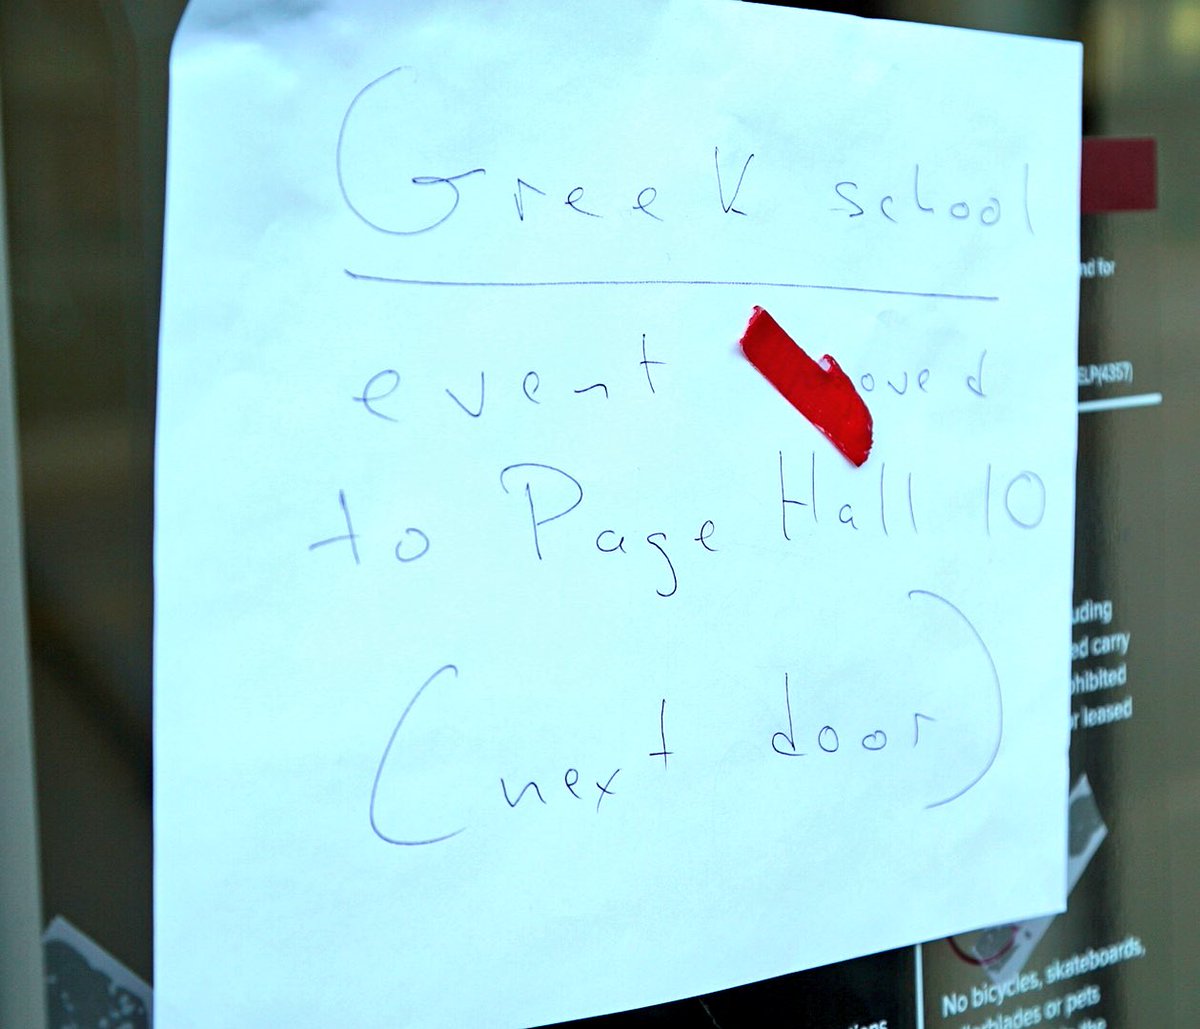 Greek school
event oved
to Page Hall 10
(next door)
nd for
ELP(4357)
uding
ed carry
ohibited
or leased
No bicycles, skateboards,
llerblades or pets
the